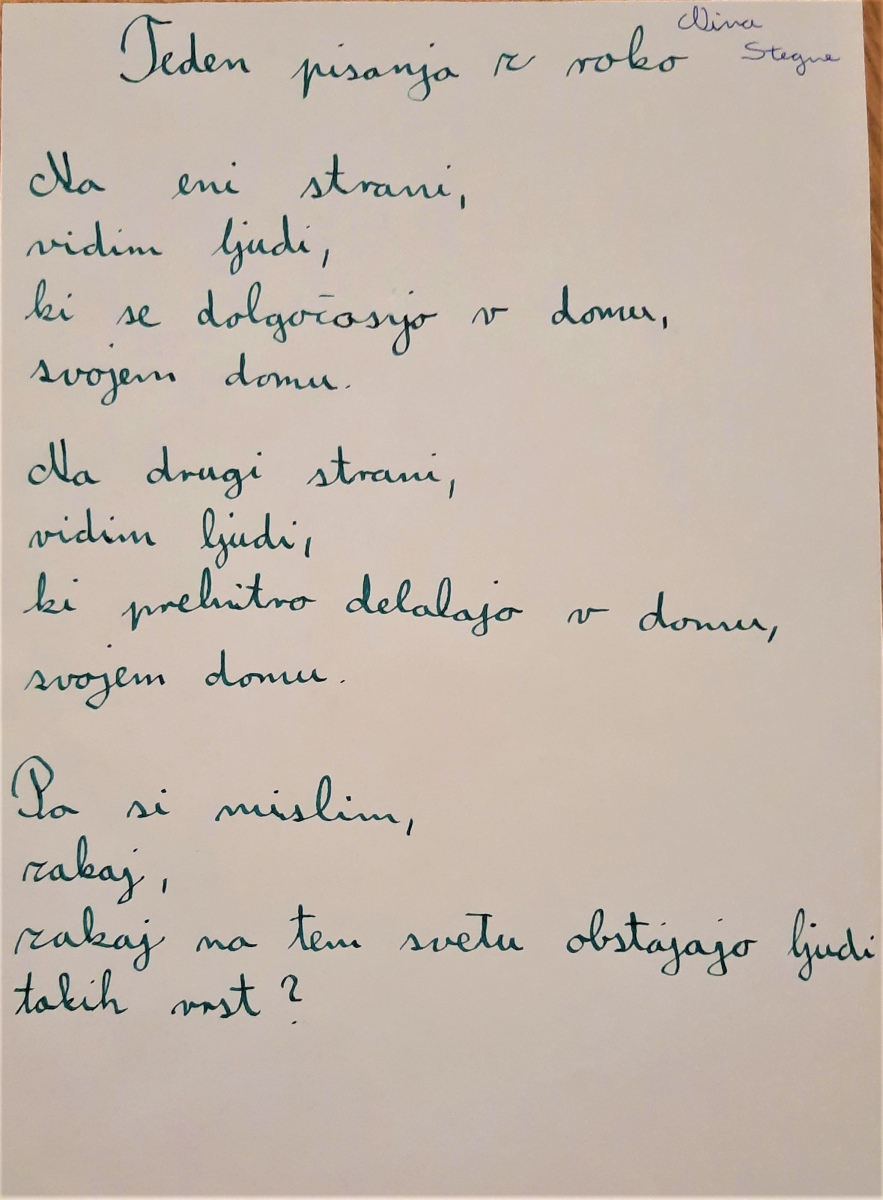 Nina
Stegne
Teden pisanja z roko
Na eni strani,
vidim ljudi,
ki se dolgočasijo v domu,
svojem domu.
Na drugi strani,
vidim ljudi,
ki prehitro delalajo v domu,
svojem domu.
Pa si mislim,
zakaj,
zakaj na tem svetu obstajajo ljudi
takih vrst?